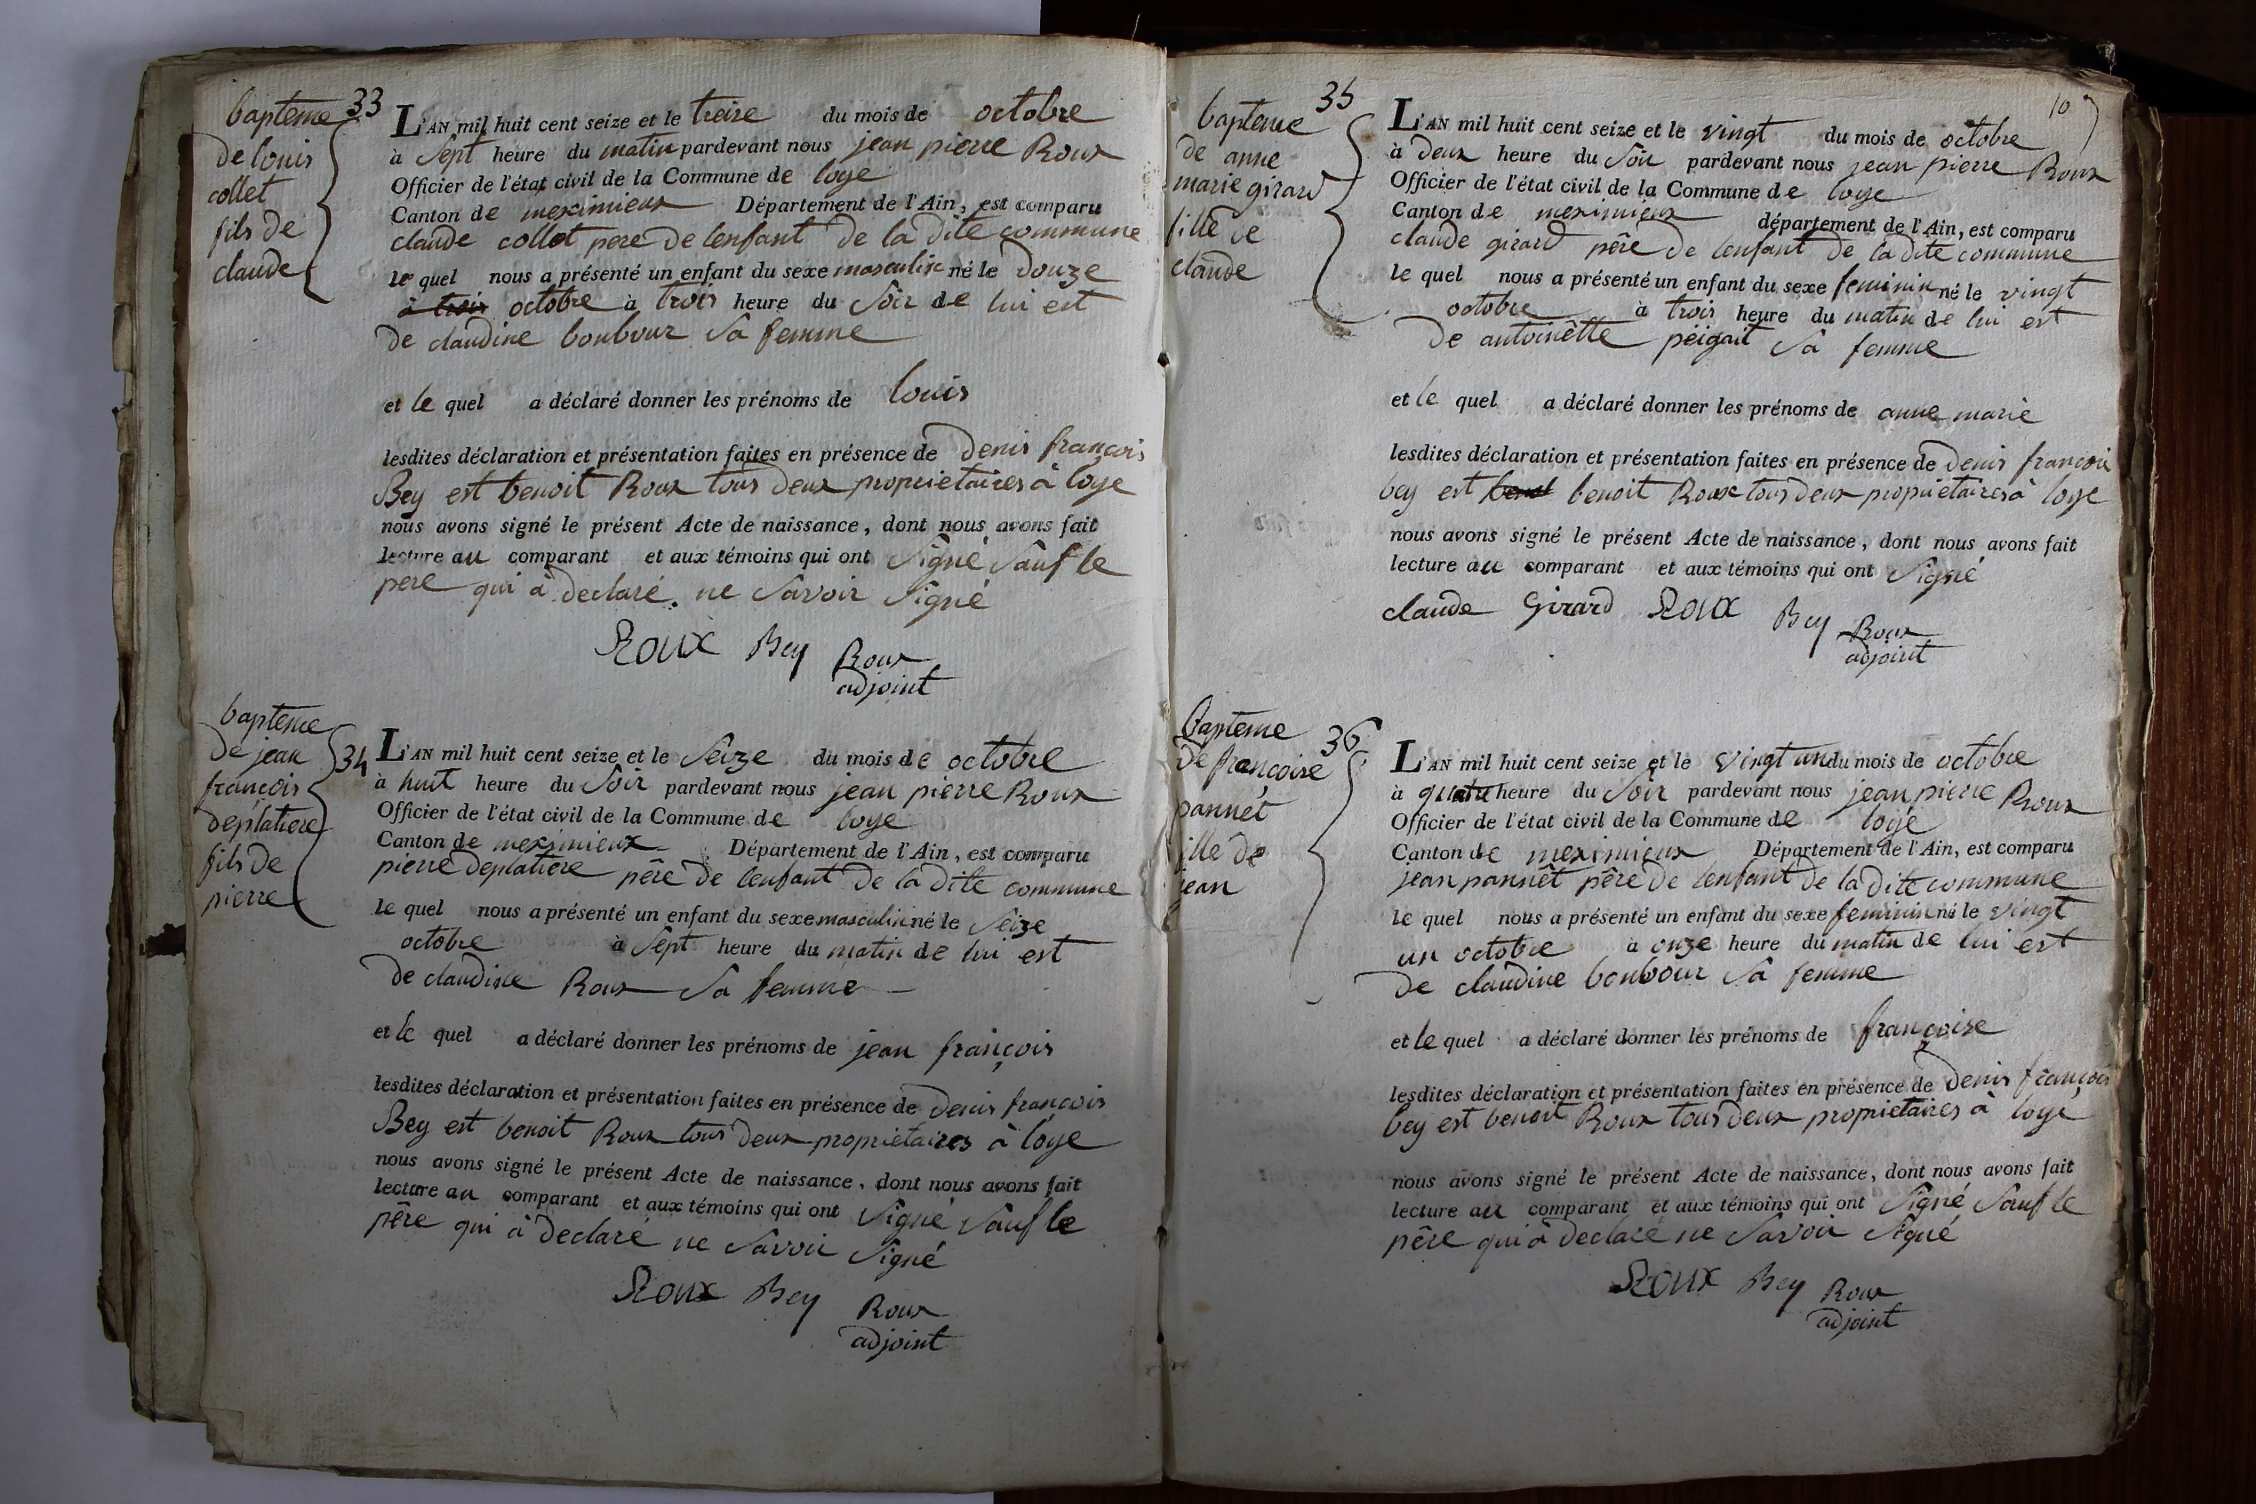 33
bapteme
de louis
collet
fils de
claude
L'AN mil huit cent seize et le treise du mois de octobre
à sept heure du matin pardevant nous jean pierre Roux
Officier de l'état civil de la Commune de loye
Canton de meximieux Département de l'Ain, est comparu
claude collet pere de lenfant de la dite commune
le quel nous a présenté un enfant du sexe masculin né le douze
à trois octobre à trois heure du soir de lui est
de claudine bonbour sâ femme
et le quel a déclaré donner les prénoms de louis
lesdites déclaration et présentation faites en présence de denis françois
Bey est benoit Roux tous deux proprietaires à loye
nous avons signé le présent Acte de naissance, dont nous avons fait
lecture au comparant et aux témoins qui ont signé sâuf le
pere qui à declaré ne sâvoir signé
Roux Bey Roux
adjoint
34
bapteme
de jean
françois
deplatiere
fils de
pierre
L'AN mil huit cent seize et le seize du mois de octobre
à huit heure du soir pardevant nous jean pierre Roux
Officier de l'état civil de la Commune de loye
Canton de meximieux Département de l'Ain, est comparu
pierre deplatiere pêre de lenfant de la dite commune
le quel nous a présenté un enfant du sexe masculin né le seize
octobre à sept heure du matin de lui est
de claudine Roux sâ femme
et le quel a déclaré donner les prénoms de jean françois
lesdites déclaration et présentation faites en présence de denis françois
Bey est benoit Roux tous deux proprietaires à loye
nous avons signé le présent Acte de naissance, dont nous avons fait
lecture au comparant et aux témoins qui ont signé sâuf le
pêre qui à declaré ne sâvoir signé
Roux Bey Roux
adjoint
10
35
bapteme
de anne
marie girard
fille de
claude
L'AN mil huit cent seize et le vingt du mois de octobre
à deux heure du soir pardevant nous jean pierre Roux
Officier de l'état civil de la Commune de loye
Canton de meximieux département de l'Ain, est comparu
claude girard pêre de lenfant de la dite commune
le quel nous a présenté un enfant du sexe feminin né le vingt
octobre à trois heure du matin de lui est
de antoinêtte péigait sâ femme
et le quel a déclaré donner les prénoms de anne marie
lesdites déclaration et présentation faites en présence de denis françois
bey est benoit Roux tous deux proprietaires à loye
nous avons signé le présent Acte de naissance, dont nous avons fait
lecture au comparant et aux témoins qui ont signé
claude Girard Roux Bey Roux
adjoint
36
bapteme
de françoise
pannêt
fille de
jean
L'AN mil huit cent seize et le vingt un du mois de octobre
à quatre heure du soir pardevant nous jean pierre Roux
Officier de l'état civil de la Commune de loye
Canton de meximieux Département de l'Ain, est comparu
jean pannêt pêre de lenfant de la dite commune
le quel nous a présenté un enfant du sexe feminin né le vingt
un octobre à onze heure du matin de lui est
de claudine bonbour sâ femme
et le quel a déclaré donner les prénoms de françoise
lesdites déclaration et présentation faites en présence de denis françois
bey est benoit Roux tous deux proprietaires à loye
nous avons signé le présent Acte de naissance, dont nous avons fait
lecture au comparant et aux témoins qui ont signé sâuf le
pêre qui à declaré ne sâvoir signé
Roux Bey Roux
adjoint